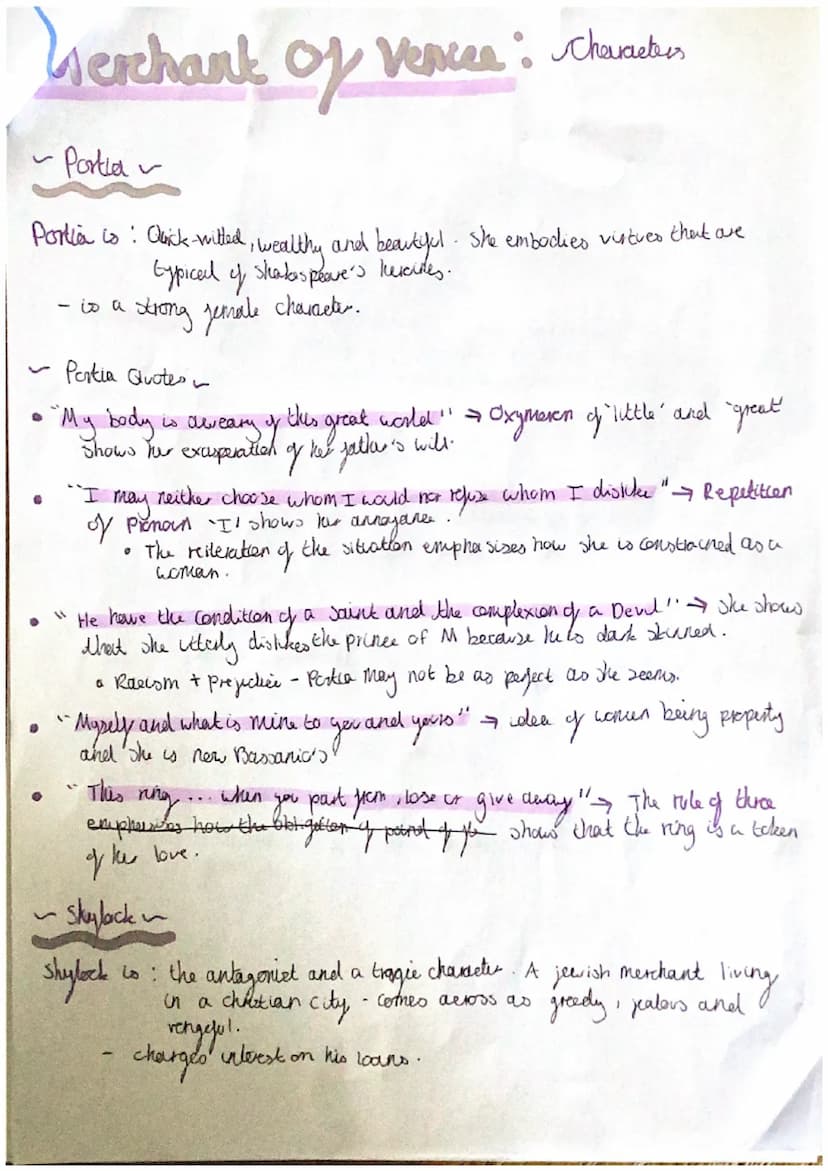 Merchant Of Venice: Characters
~ Portia ~
Portia is : Quick-witted, wealthy and beautiful. She embodies virtues that are
typical of Shakespeare's heroines.
- is a strong female character.
~ Portia Quotes ~
• "My body is aweary of this great world" → Oxymoron of 'little' and 'great'
shows her exasperation of her father's will.
• "I may neither choose whom I would nor refuse whom I dislike" → Repetition
of pronoun 'I' shows her annoyance.
• The reiteration of the situation emphasizes how she is constrained as a
woman.
• "He have the condition of a saint and the complexion of a Devil" → She shows
that she utterly dislikes the prince of M because he is dark skinned.
• Racism + Prejudice - Portia may not be as perfect as she seems.
• "Myself and what is mine to you and yours" → idea of women being property
and she is now Bassanio's
• "This ring... when you part from, lose or give away" → The rule of three
emphasises how the obligation of pound of shows that the ring is a token
of her love.
~ Skylock ~
Shylock is : the antagonist and a tragic character. A jewish merchant living
in a christian city - comes across as greedy, jealous and
vengeful.
- charges interest on his loans.